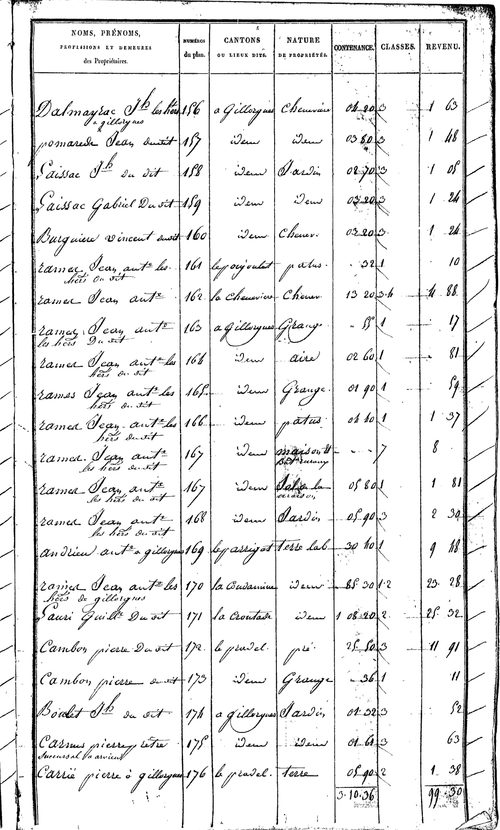 NOMS, PRÉNOMS, PROFESSIONS ET DEMEURES des Propriétaires. NUMÉROS du plan. CANTONS OU LIEUX DITS. NATURE DE PROPRIÉTÉS. CONTENANCE. CLASSES. REVENU.
Dalmayrac Jh les hers a gillorgues 156 a Gillorgues Cheneviere 04 20 3 1 63
pomarede Jean du dit 157 idem idem 03 80 3 1 48
Gaissac Jh du dit 158 idem Jardin 02 70 3 1 05
Gaissac Gabriel Du dit 159 idem idem 03 20 3 1 24
Burguiere vincent du dit 160 idem Chenev. 03 20 3 1 24
ramed Jean ante les hers du dit 161 le poujoulet patus 32 1 10
ramed Jean ante 162 la Cheneviere Chenev 13 20 3-4 4 88
ramed Jean ante les hers Du dit 163 a Gillorgues Grange 55 1 17
ramed Jean ante les hers du dit 164 idem aire 02 60 1 81
ramed Jean ante les hers du dit 165 idem Grange 01 90 1 59
ramed Jean ante les hers du dit 166 idem patus 04 40 1 1 37
ramed Jean ante les hers du dit 167 idem maison 7 8
ramed Jean ante les hers du dit 167 idem Sol de la maison 05 80 1 1 81
ramed Jean ante les hers du dit 168 idem Jardin 05 90 3 2 30
andrieu ante a gillorgues 169 le parrigot terre lab 30 40 1 9 48
ramed Jean ante les hers de gillorgues 170 la Coudamine idem 85 30 1-2 23 28
Lauri Guille Du dit 171 la Croutade idem 1 08 20 2 25 32
Cambon pierre Du dit 172 le pradel pré 25 50 3 11 91
Cambon pierre du dit 173 idem Grange 36 1 11
Boulet Jh du dit 174 a gillorgues Jardin 01 32 3 52
Carnus pierre prêtre 175 idem idem 01 61 3 63
Carrié pierre à gillorgues 176 le pradel terre 05 90 2 1 38
3.10.36 99.30